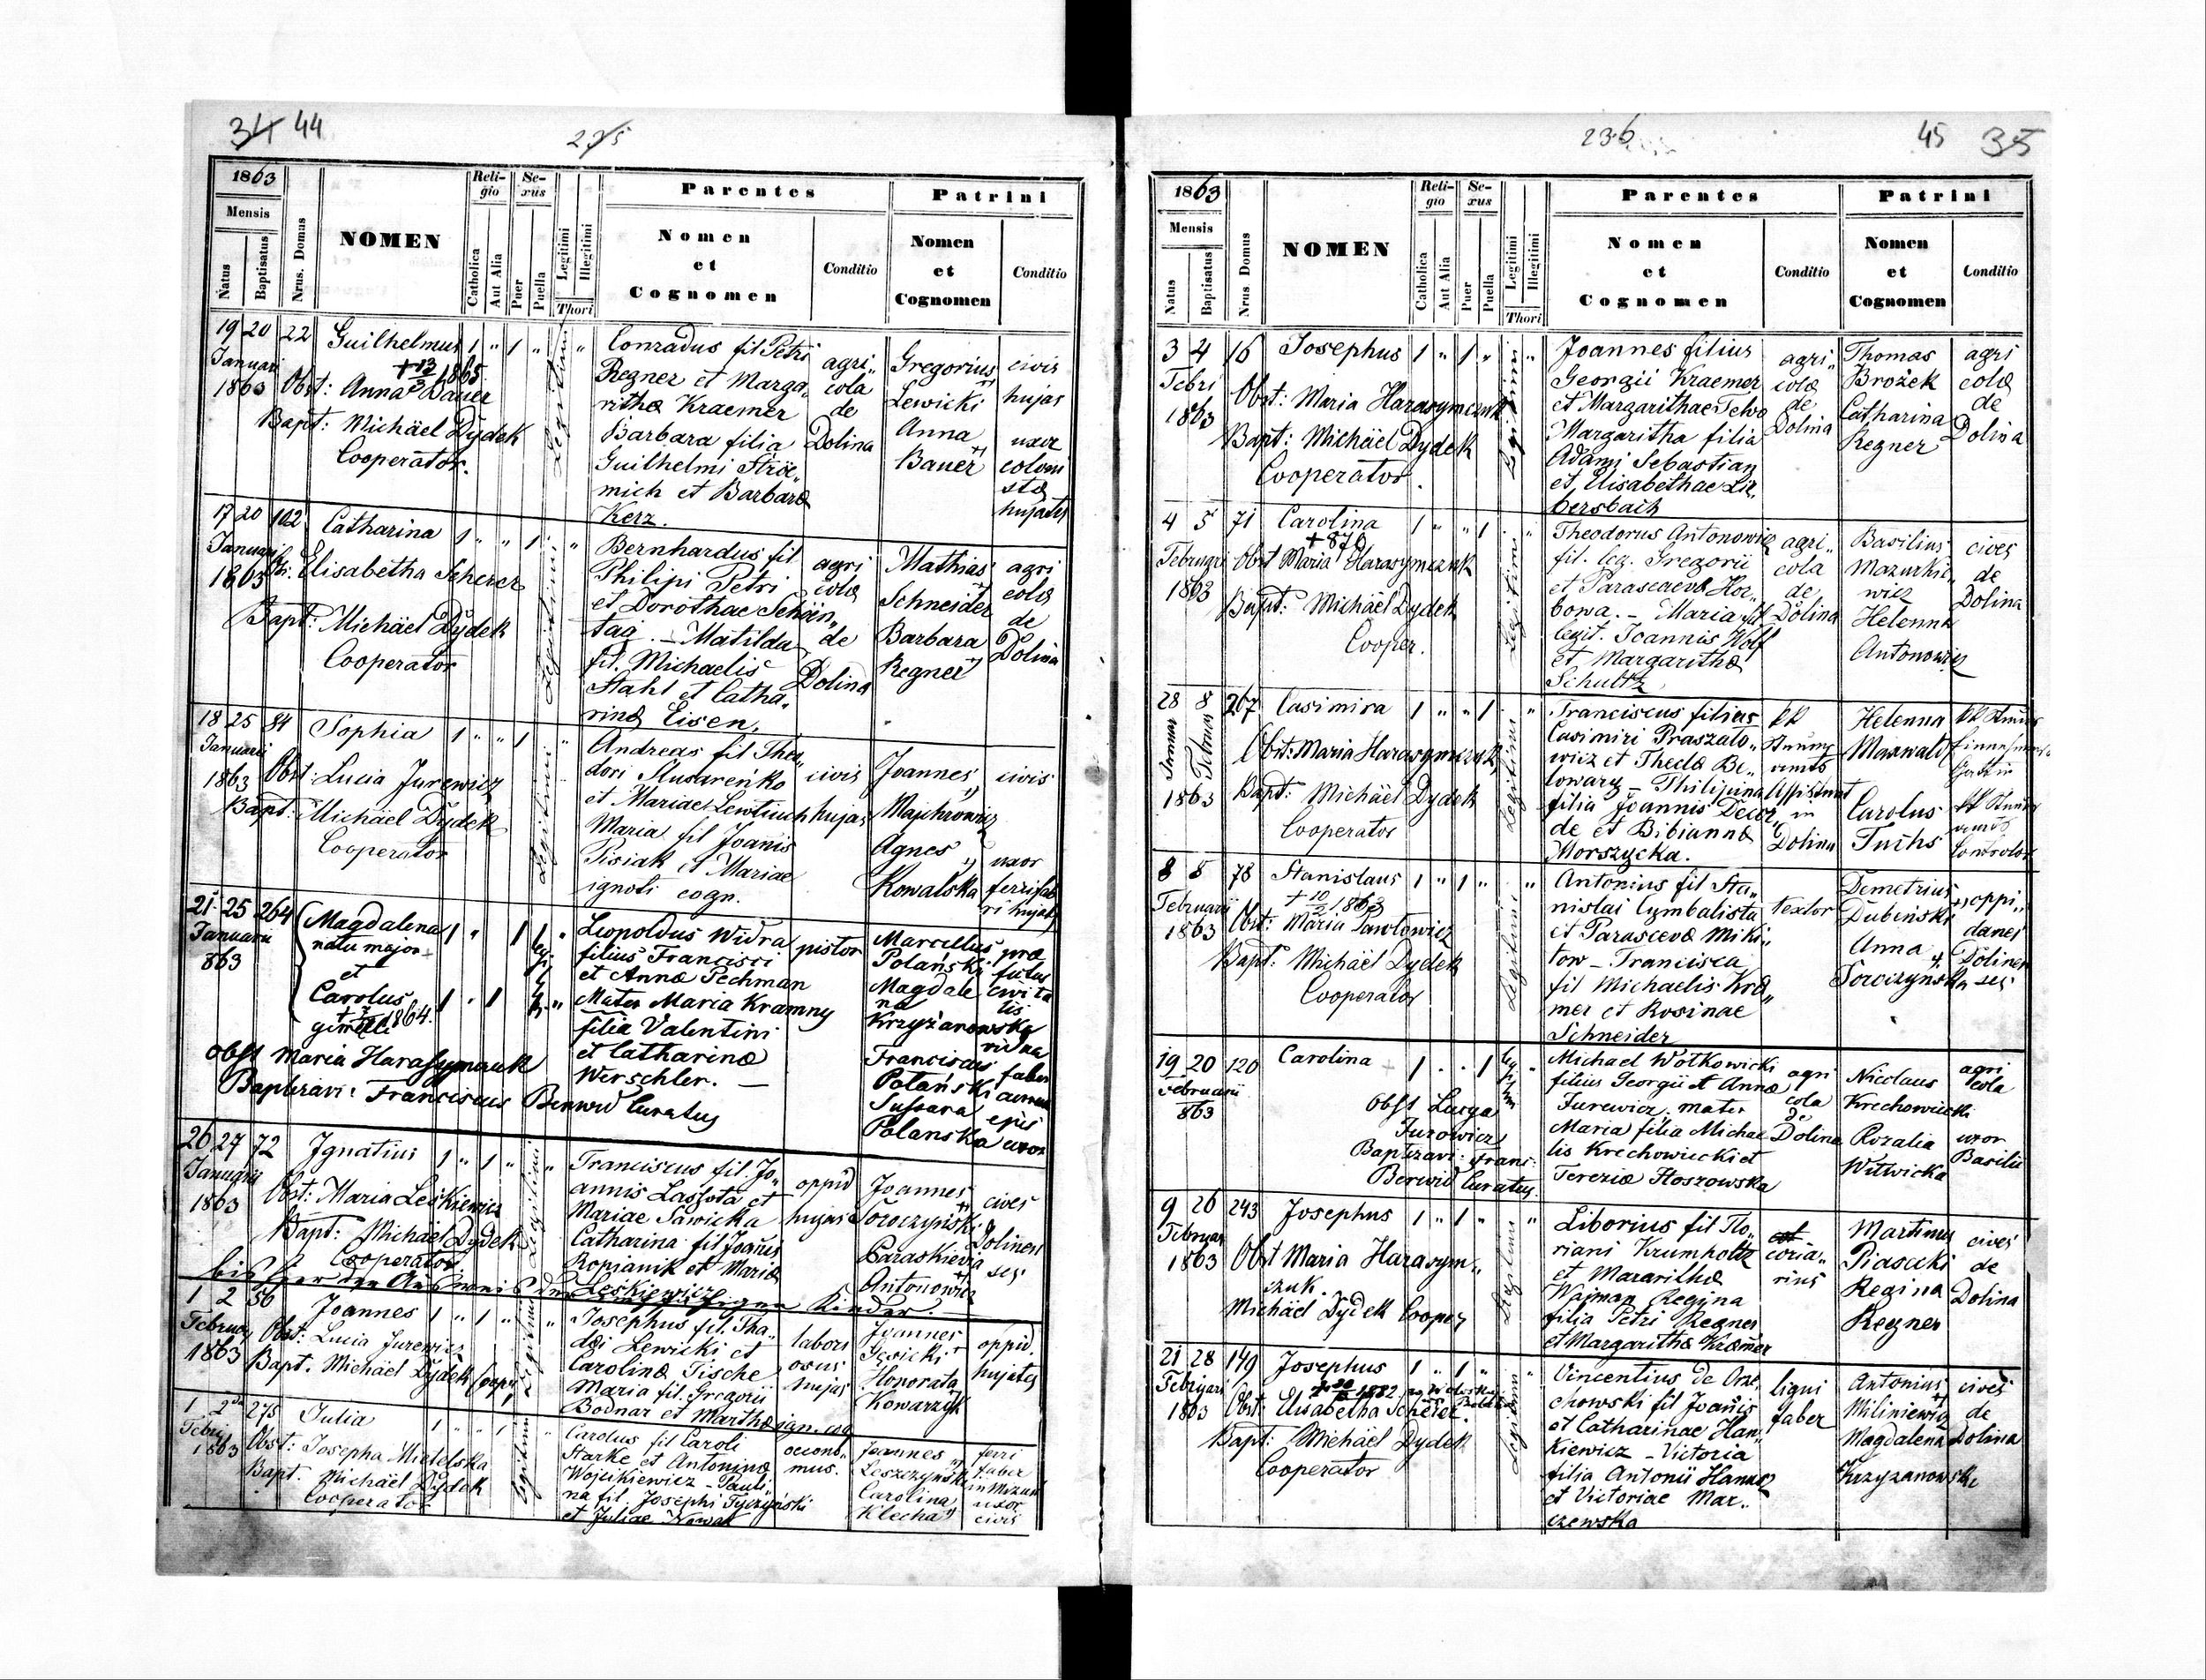 34 44
275
1863
Mensis
Natus
Baptisatus
Nrus. Domus
NOMEN
Religio
Catholica
Aut Alia
Sexus
Puer
Puella
Legitimi
Illegitimi
Thori
Parentes
Nomen
et
Cognomen
Conditio
Patrini
Nomen
et
Cognomen
Conditio
19 20 22 Guilhelmus 1 " 1 "
Januari
1863
+ 13 1865
Obst: Anna Bauer
Bapt: Michäel Dydek
Cooperator.
Legitimi
Conradus fil Petri
Regner et Marga„
ritha Kraemer
Barbara filia
Guilhelmi Ströe„
mich et Barbara
Kerz.
agri„
cola
de
Dolina
Gregorius
Lewicki
Anna
Bauer
civis
hujas
uxor
coloni
sta
hujatis
17 20 102 Catharina 1 " " 1 "
Januari
1863
Obst: Elisabetha Scherer
Bapt: Michäel Dydek
Cooperator
Legitimi
Bernhardus fil
Philipi Petri
et Dorothae Schön„
tag. – Matilda
fil. Michaelis
Stahl et Catha„
rina Eisen.
agri
cola
de
Dolina
Mathias
Schneider
Barbara
Regner
agri
cola
de
Dolina
18 25 84 Sophia 1 " " 1 "
Januarii
1863
Obst: Lucia Jurewicz
Bapt: Michäel Dydek
Cooperator
Legitimi
Andreas fil Theo„
dori Slusareńko
et Mariae Lewtiuch
Maria fil Joanis
Pisiak et Mariae
ignoti cogn.
civis
hujas
Joannes
Majchrowicz
Agnes
Kowalska
civis
uxor
ferrifab
ri hujat
21 25 264 Magdalena 1 " 1
Januarii
863
natu major
et
Carolus 1 " 1
gimelli
1864.
Obst Maria Harasymczuk
Baptizavi: Franciscus Berwid Curatus
Leopoldus Widra
filius Francisci
et Anna Pechman
Mater Maria Kramny
filia Valentini
et Catharina
Werschler. —
pistor
Marcellus
Polański
Magdale
na
Krzyżanowska
Franciscus
Polański
Sussara
Polanska
præ
fectus
civita
tis
vidua
faber
ejus
uxor
26 27 72 Ignatius 1 " 1 "
Januarii
1863
Obst: Maria Leśkiewicz
Bapt: Michäel Dydek
Cooperator.
Legitimi
Franciscus fil Jo„
annis Lassota et
Mariae Sawicka
Catharina fil Joanis
Romanik et Maria
Leśkiewicz
oppid
hujas
Joannes
Toroczyński
Paraskievia
Antonowicz
cives
Dolinen
ses
bis hier der Ausweis der Kinder.
1 2 56 Joannes 1 " 1 "
Februar
1863
Obst: Lucia Jurewicz
Bapt. Michäel Dydek Coop
Legitimi
Josephus fil. Tha„
dei Lewicki et
Carolina Tische
Maria fil. Gregorii
Bodnar et Martha ign. cog
labori
osus
hujas
Joannes
Honorata
Kowarzyk
oppid.
hujates
1 2 275 Julia 1 " " 1
Febr
1863
Obst: Josepha Mielelska
Bapt. Michäel Dydek
Cooperator
Legitimi
Carolus fil Caroli
Starke et Antonina
Wojcikiewicz – Pauli„
na fil. Josephi Tyczyński
et Juliae Nowak
oeconó„
mus.
Joannes
Leszczyński
Carolina
Klecha
ferri
faber
in Mizun
uxor
civis
236
45 35
1863
Mensis
Natus
Baptisatus
Nrus Domus
NOMEN
Religio
Catholica
Aut Alia
Sexus
Puer
Puella
Legitimi
Illegitimi
Thori
Parentes
Nomen
et
Cognomen
Conditio
Patrini
Nomen
et
Cognomen
Conditio
3 4 16 Josephus 1 " 1 "
Febri
1863
Obst: Maria Harasymczuk
Bapt: Michäel Dydek
Cooperator.
Legitimi
Joannes filius
Georgii Kraemer
et Margarithae Telvo
Margaritha filia
Adami Sebastian
et Elisabethae Lie„
bersbach
agri„
cola
de
Dolina
Thomas
Brożek
Catharina
Regner
agri
cola
de
Dolina
4 5 71 Carolina 1 " " 1
+ 870
Februari
1863
Obst Maria Harasymczuk
Bapt: Michäel Dydek
Cooper.
Legitimi
Theodorus Antonowicz
fil. leg. Gregorii
et Parascaeva Hor„
bowa. – Maria fil
legit. Joannis Wolf
et Margaritha
Schultz
agri„
cola
de
Dolina
Basilius
Mazurkie„
wicz
Helenna
Antonowicz
cives
de
Dolina
28 8 267 Casimira 1 " " 1
1863
Obst: Maria Harasymczuk
Bapt: Michäel Dydek
Cooperator
Legitimi
Franciscus filius
Casimiri Praszalo„
wicz et Thecla Be„
lowary – Philipina
filia Joannis Decor
de et Bibianna
Morszycka.
kk
Assistent
in
Dolina
Helenna
Maxwald
Carolus
Fuchs
8 8 78 Stanislaus 1 " 1 "
+ 10/2 1863
Februarii
1863
Obst: Maria Pawlowicz
Bapt: Michäel Dydek
Cooperator
Legitimi
Antonius fil Sta„
nislai Cymbalista
et Parasceva Miki„
tow – Francisca
fil Michaelis Kra„
mer et Rosinae
Schneider
textor
Demetrius
Dubiński
Anna
Toroczynska
oppi„
danei
Dolinen
ses
19 20 120 Carolina 1 . . 1
Februarii
863
Obst Lucya
Jurowicz
Baptizavi: Franc:
Berwid Curatus.
Michael Wołkowicki
filius Georgii et Anna
Jurewicz. mater
Maria filia Michae
lis Krechowiecki et
Terezia Hoszowska
agri
cola
de
Dolina
Nicolaus
Krechowiecki
Rozalia
Witwicka
agri
cola
uxor
Basilii
9 26 243 Josephus 1 " 1 "
Februar
1863
Obst Maria Harasym„
czuk.
Michäel Dydek Cooper
Legitimi
Liborius fil Flo„
riani Krumholtz
et Mararitha
Wajman Regina
filia Petri Regner
et Margaritha Kræmer
coria„
rius
Martinus
Piasecki
Regina
Regner
cives
de
Dolina
21 28 149 Josephus 1 " 1 "
Februari
1863
1882
Obst: Elisabetha Scherer.
Bapt: Michäel Dydek
Cooperator
Legitimi
Vincentius de Orze„
chowski fil Joanis
et Catharinae Han„
kiewicz – Victoria
filia Antonii Hanus
et Victoriae Mar„
czewska
ligni
faber
Antonius
Miliniewicz
Magdalena
Krzyzanowska
cives
de
Dolina